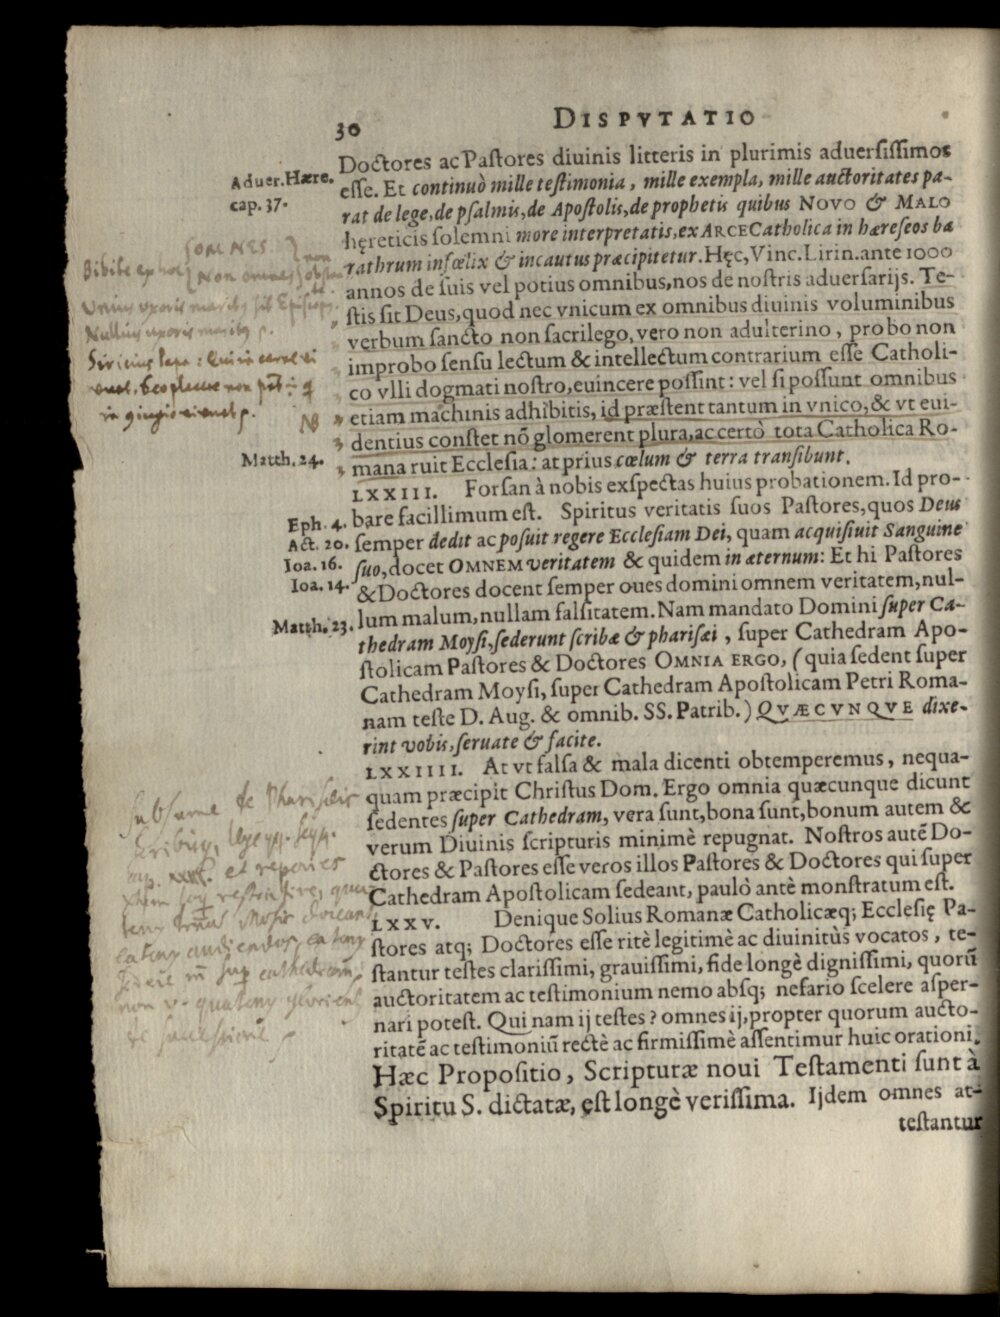 30 DISPVTATIO
Doctores ac Pastores diuinis litteris in plurimis aduersissimos
Aduer.Hære.
cap. 37.
esse. Et continuò mille testimonia, mille exempla, mille auctoritates pa-
rat de lege, de psalmis, de Apostolis, de prophetis quibus NOVO & MALO
hęreticis solemni more interpretatis, ex ARCE Catholica in hæreseos ba
rathrum infœlix & incautus præcipitetur. Hęc, Vinc. Lirin. ante 1000
annos de suis vel potius omnibus, nos de nostris aduersarijs. Te-
stis sit Deus, quod nec vnicum ex omnibus diuinis voluminibus
verbum sancto non sacrilego, vero non adulterino, probo non
improbo sensu lectum & intellectum contrarium esse Catholi-
co vlli dogmati nostro, euincere possint: vel si possunt omnibus
etiam machinis adhibitis, id præstent tantum in vnico, & vt eui-
dentius constet nõ glomerent plura, ac certò tota Catholica Ro-
Matth. 24.
mana ruit Ecclesia: at prius cœlum & terra transibunt.
LXXIII. Forsan à nobis exspectas huius probationem. Id pro-
Eph. 4.
bare facillimum est. Spiritus veritatis suos Pastores, quos Deus
Act. 20.
semper dedit ac posuit regere Ecclesiam Dei, quam acquisiuit Sanguine
Ioa. 16.
suo, docet OMNEM veritatem & quidem in æternum: Et hi Pastores
Ioa. 14.
& Doctores docent semper oues domini omnem veritatem, nul-
lum malum, nullam falsitatem. Nam mandato Domini super Ca-
Matth. 23.
thedram Moysi, sederunt scribæ & pharisæi, super Cathedram Apo-
stolicam Pastores & Doctores OMNIA ERGO, (quia sedent super
Cathedram Moysi, super Cathedram Apostolicam Petri Roma-
nam teste D. Aug. & omnib. SS. Patrib.) QVÆCVNQVE dixe-
rint vobis, seruate & facite.
LXXIIII. At vt falsa & mala dicenti obtemperemus, nequa-
quam præcipit Christus Dom. Ergo omnia quæcunque dicunt
sedentes super Cathedram, vera sunt, bona sunt, bonum autem &
verum Diuinis scripturis minimè repugnat. Nostros autẽ Do-
ctores & Pastores esse veros illos Pastores & Doctores qui super
Cathedram Apostolicam sedeant, paulò antè monstratum est.
LXXV. Denique Solius Romanæ Catholicæq; Ecclesię Pa-
stores atq; Doctores esse ritè legitimè ac diuinitùs vocatos, te-
stantur testes clarissimi, grauissimi, fide longè dignissimi, quorũ
auctoritatem ac testimonium nemo absq; nefario scelere asper-
nari potest. Qui nam ij testes? omnes ij, propter quorum aucto-
ritatẽ ac testimoniũ rectè ac firmissimè assentimur huic orationi.
Hæc Propositio, Scripturæ noui Testamenti sunt à
Spiritu S. dictatæ, est longè verissima. Ijdem omnes at-
testantur
OMNES
non omnes
Nullius uxoris
NB
de Phariseis
et reperies
cathedram